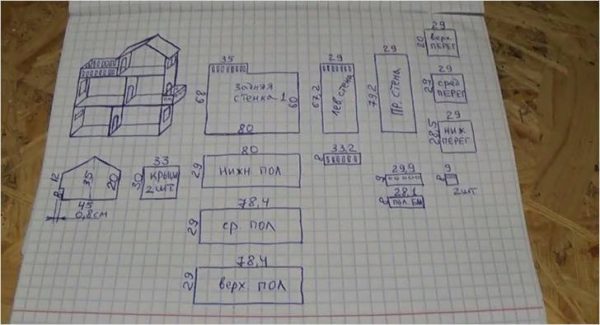 35
68
задняя
стенка 1
60
80
29
67,2
лев. стена
29
79,2
Пр. стена
29
20
верх.
ПЕРЕГ
29
29
сред
ПЕРЕГ
29
28,5
ниж
ПЕРЕГ
12
8
35
20
45
0,8см
33
30
крыши
2 шт
80
29
нижн пол
33,2
8
29,9
9
9
2 шт
28,1
8
78,4
29
ср пол
78,4
29
верх пол